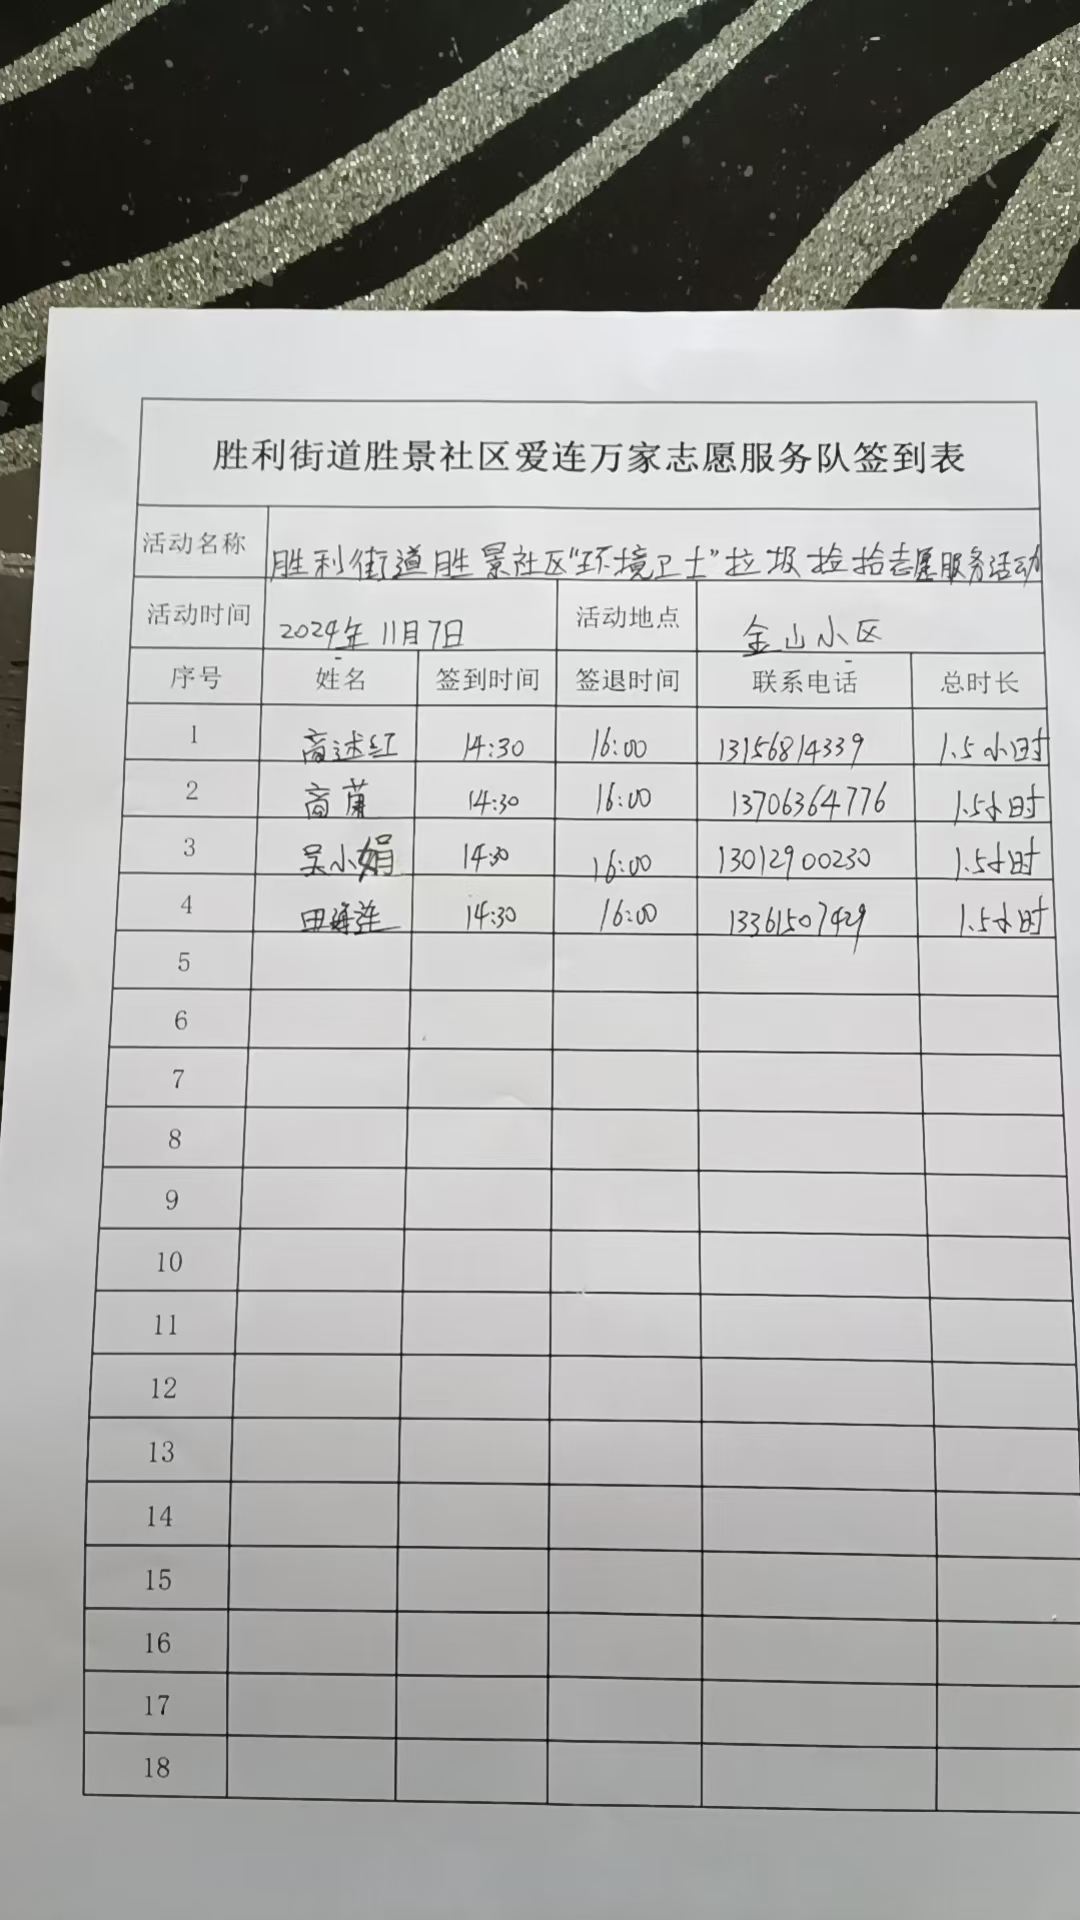 胜利街道胜景社区爱连万家志愿服务队签到表
活动名称 胜利街道胜景社区“环境卫士”垃圾捡拾志愿服务活动
活动时间 2024年11月7日 活动地点 金山小区
序号 姓名 签到时间 签退时间 联系电话 总时长
1 商述红 14:30 16:00 13156814339 1.5小时
2 商 14:30 16:00 13706364776 1.5小时
3 吴小娟 14:30 16:00 13012900230 1.5小时
4 田 莲 14:30 16:00 13361507429 1.5小时
5
6
7
8
9
10
11
12
13
14
15
16
17
18